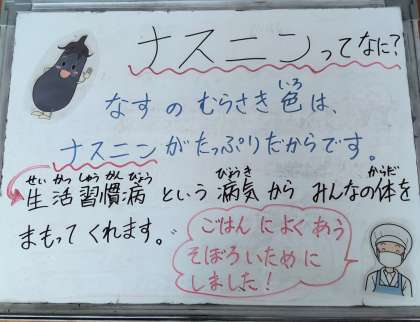 ナスニンってなに?
なすのむらさき色は、
いろ
ナスニンがたっぷりだからです。
せいかつしゅうかんびょう
びょうき
からだ
生活習慣病という病気からみんなの体を
まもってくれます。
ごはんによくあう
そぼろいために
しました!